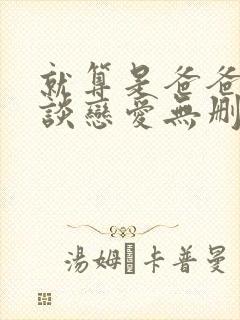 就算是爸爸
談戀愛無刪
湯姆·卡普曼